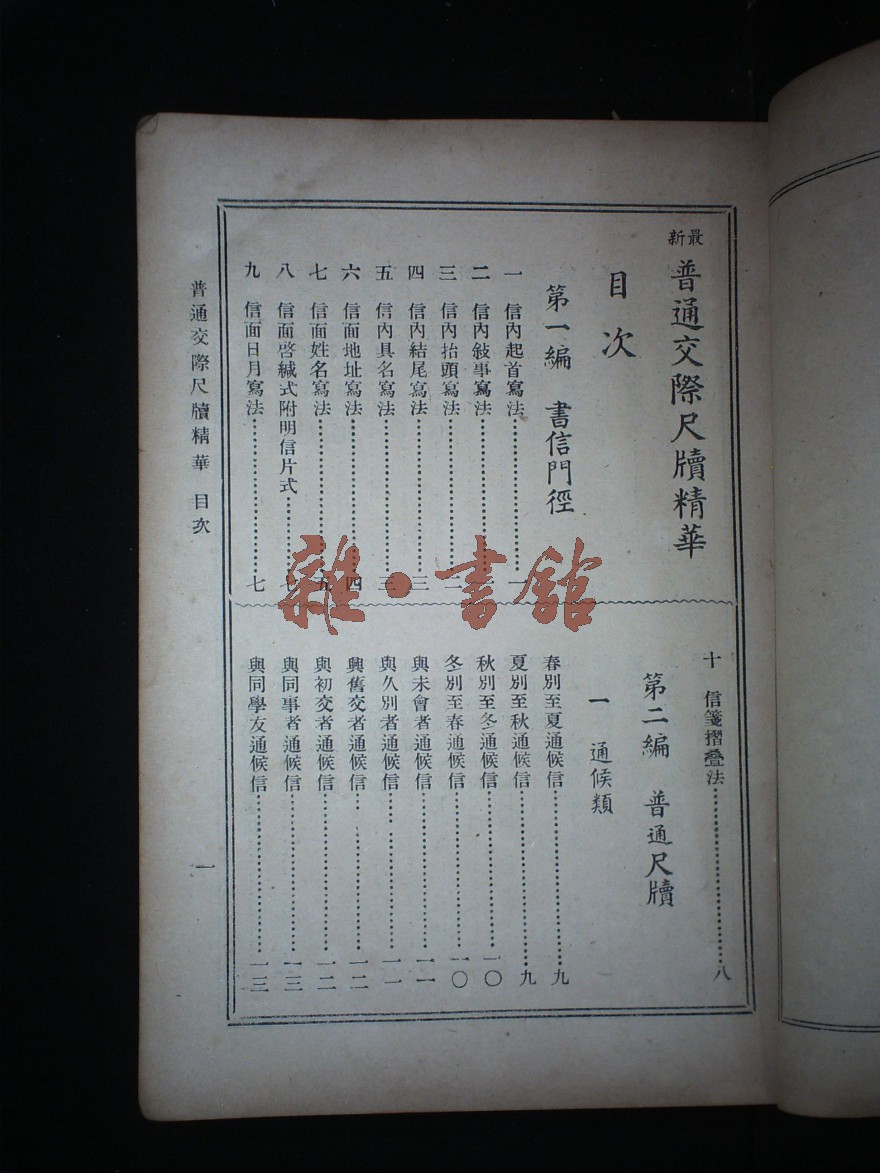 最新
普通交際尺牘精華
目次
第一編 書信門徑
一 信內起首寫法……一
二 信內敍事寫法……二
三 信內抬頭寫法……二
四 信內結尾寫法……三
五 信內具名寫法……三
六 信面地址寫法……四
七 信面姓名寫法……五
八 信面啓緘式附明信片式……七
九 信面日月寫法……七
十 信箋摺疊法……八
第二編 普通尺牘
一 通候類
春別至夏通候信……九
夏別至秋通候信……九
秋別至冬通候信……一〇
冬別至春通候信……一〇
與未會者通候信……一一
與久別者通候信……一一
與舊交者通候信……一二
與初交者通候信……一二
與同事者通候信……一三
與同學友通候信……一三
普通交際尺牘精華 目次
一
雜·書館